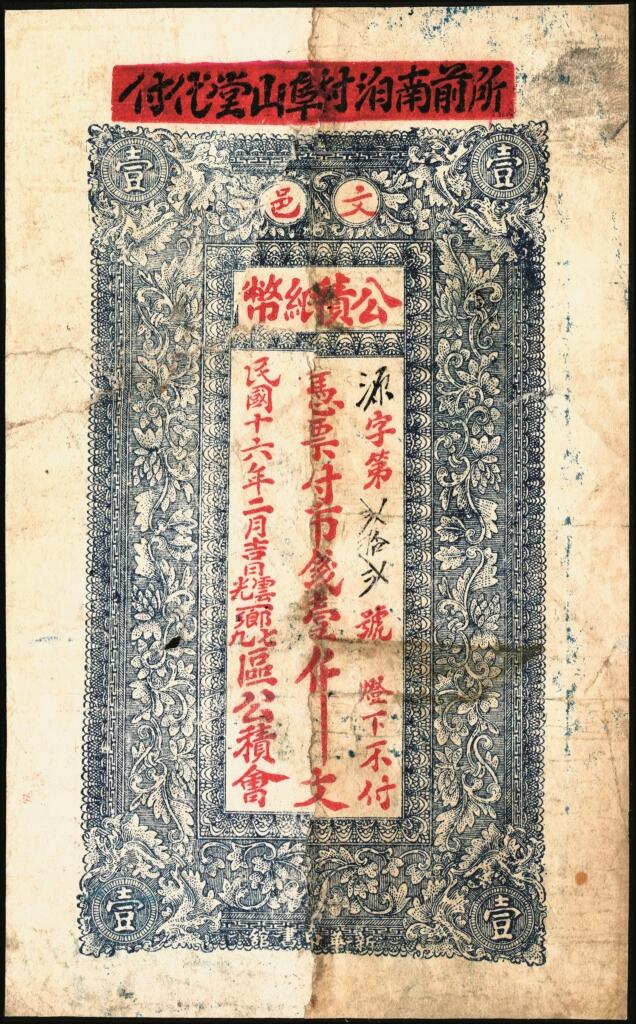 所前南泊村阜山堂代付
壹 壹
文邑
公積紙幣
源字第弍拾弍號 燈下不付
憑票付市錢壹仟文
民國十六年二月吉日雲光鄉七九區公積會
壹 壹
新華印書館